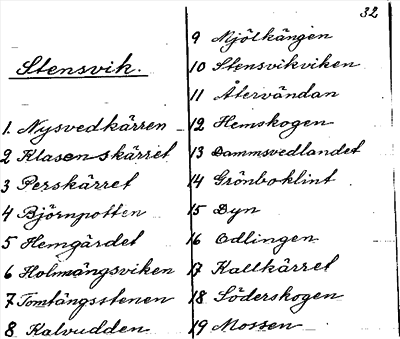 32
Stensvik.
1. Nysvedkärren
2 Klasenskärret
3 Perskärret
4 Björnpotten
5 Hemgärdet
6 Holmängsviken
7 Tomtängsstenen
8 Kalvudden
9 Mjölkängen
10 Stensvikviken
11 Återvändan
12 Hemskogen
13 Dammsvedlandet
14 Grönboklint
15 Dyn
16 Odlingen
17 Kallkärret
18 Söderskogen
19 Mossen